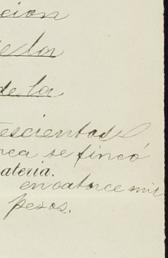 cion
de los
de la
rescientos
rca se fincó
ateria.
en catorce mil
pesos.